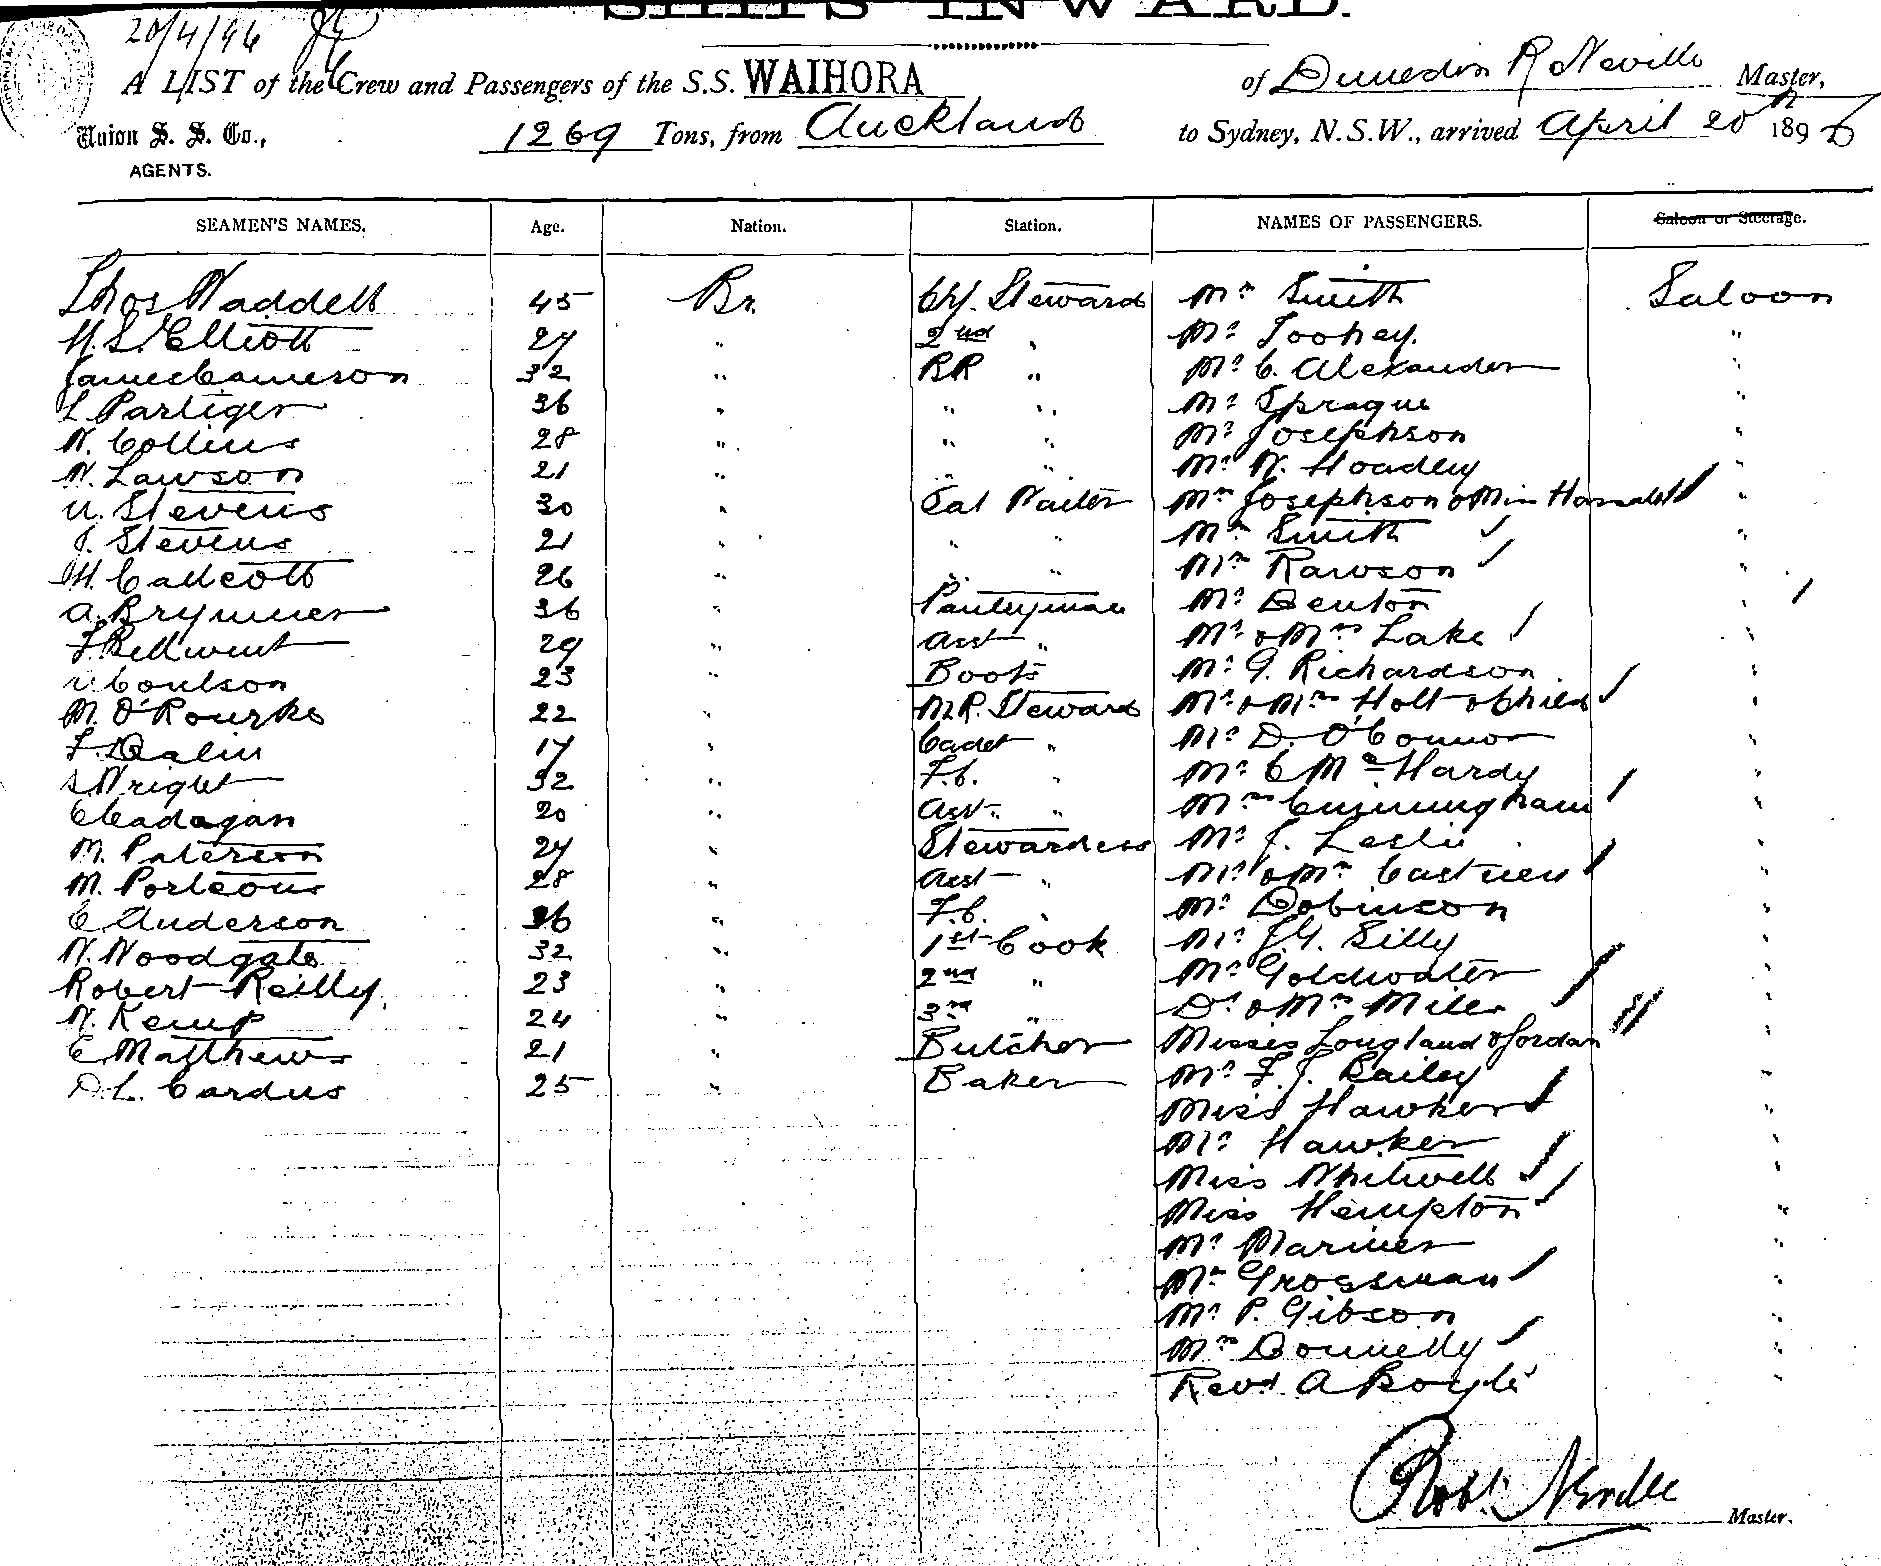 SHIPS INWARD.
20/4/96
A LIST of the Crew and Passengers of the S.S. WAIHORA of Dunedin R Neville Master,
Union S. S. Co., 1269 Tons, from Auckland to Sydney, N.S.W., arrived April 20th 1896
AGENTS.
SEAMEN'S NAMES. Age. Nation. Station. NAMES OF PASSENGERS. Saloon or Steerage.
Thos Waddell 45 Br. Chf. Steward Mr Smith Saloon
H. S. Elliott 27 " 2nd " Mr Toohey. "
James Cameron 32 " BR " Mr C. Alexander "
L Partiger 36 " " " Mr Sprague "
W. Collins 28 " " " Mr Josephson "
W. Lawson 21 " " " Mr W. Hoadley "
U. Stevens 30 " Sal Waiter Mrs Josephson & Miss "
J. Stevens 21 " " " Mrs Smith "
H. Callcott 26 " " " Mrs Rawson "
A. Brymner 36 " Pantryman Mr Denton "
F. Bellwent 29 " Asst " Mr & Mrs Lake "
Coulson 23 " Boots Mr G. Richardson "
M. O'Rourke 22 " M.R. Steward Mr & Mrs Holt & Child "
F. Dalin 17 " Cadet " Mr D. O'Connor "
Wright 32 " F.C. " Mr C McHardy "
C Cadagan 20 " Asst. " Mrs Cunningham "
M. Paterson 27 " Stewardess Mr J. Leslie "
M. Porteous 28 " Asst " Mr & Mrs "
C Anderson 36 " F.C. " Mr Dobinson "
W. Woodgate 32 " 1st Cook Mr Silly "
Robert Reilly 23 " 2nd " Mr Goldwater "
W. Kemp 24 " 3rd " Dr & Mrs Miller "
C Matthews 21 " Butcher Misses Longland & Jordan "
D.L. Cardus 25 " Baker Mr F. J. Bailey "
Miss Hawker "
Mr Hawker "
Miss Whitwell "
Miss Hempton "
Mr Mariner "
Mrs Grossman "
Mr P. Gibson "
Mrs Donnelly "
Revd. A Boyle "
Robt. Neville
Master.